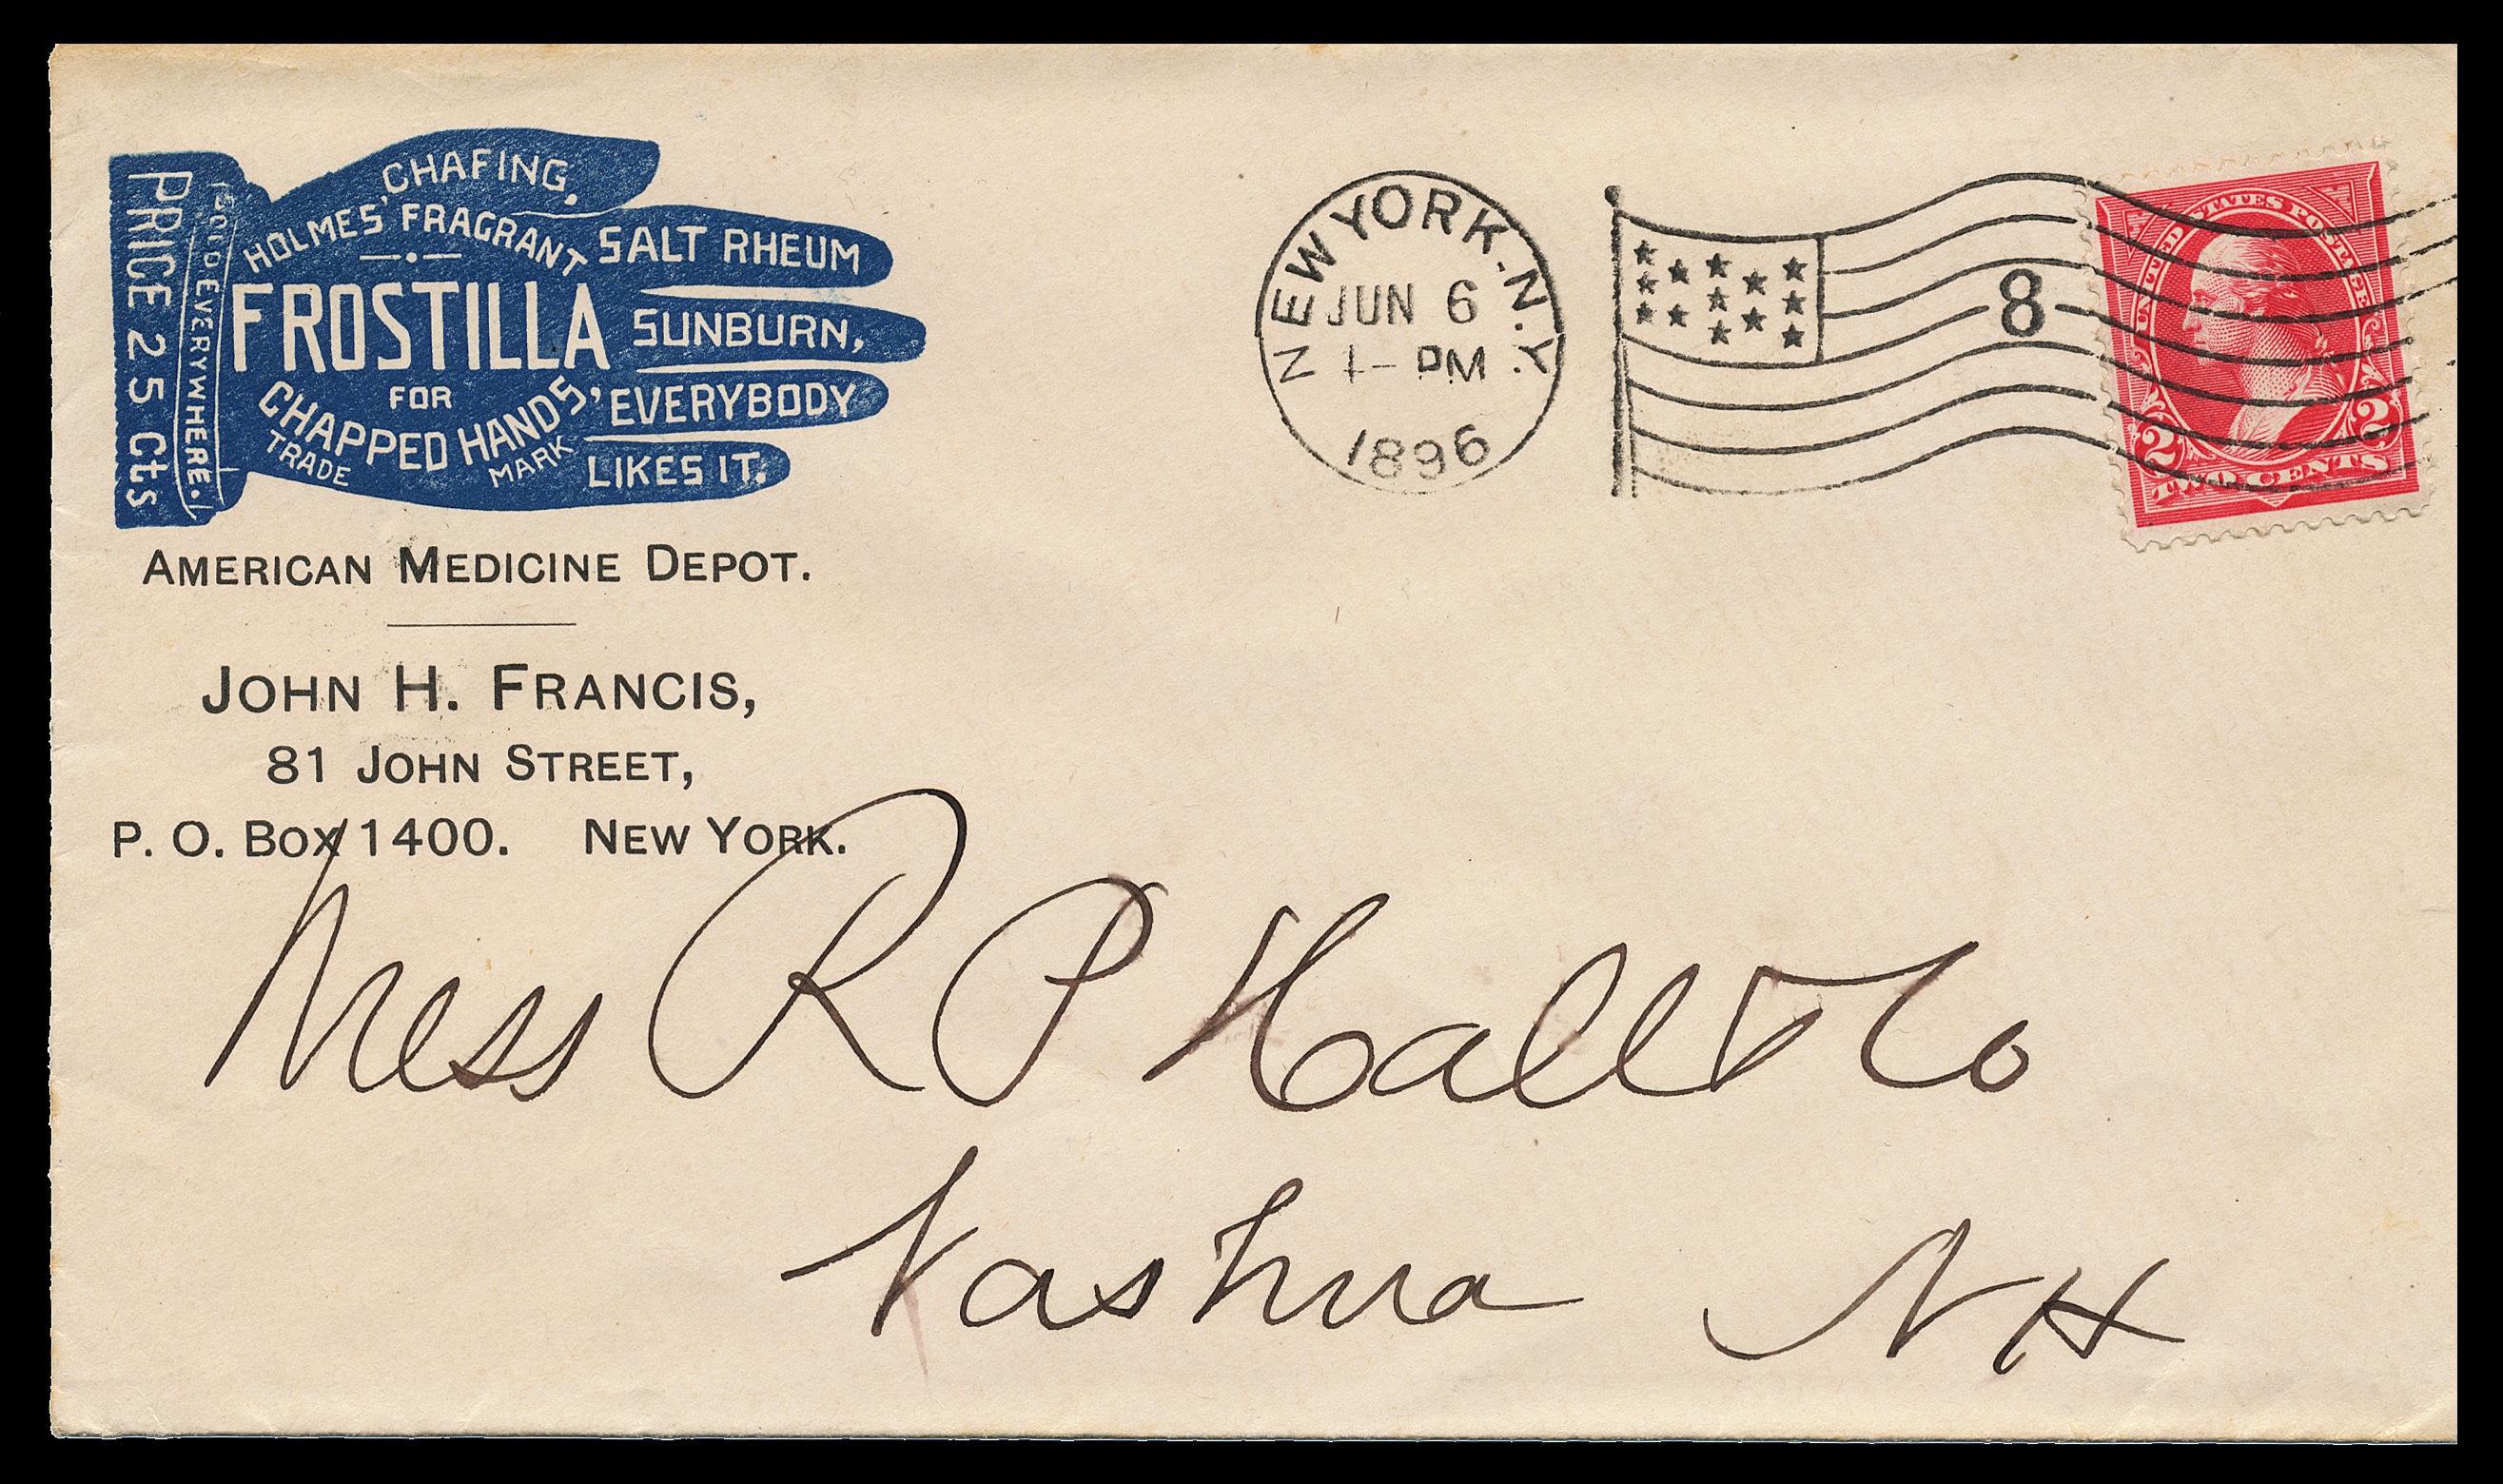 PRICE 25 Cts
SOLD EVERYWHERE.
CHAFING,
HOLMES' FRAGRANT
FROSTILLA
FOR
CHAPPED HANDS,
TRADE MARK
SALT RHEUM
SUNBURN,
'EVERYBODY
LIKES IT.'
AMERICAN MEDICINE DEPOT.
JOHN H. FRANCIS,
81 JOHN STREET,
P. O. BOX 1400. NEW YORK.
NEW YORK. N.Y.
JUN 6
1- PM
1896
8
UNITED STATES POSTAGE
2 2
TWO CENTS
Mess R P Hall & Co
Nashua N H